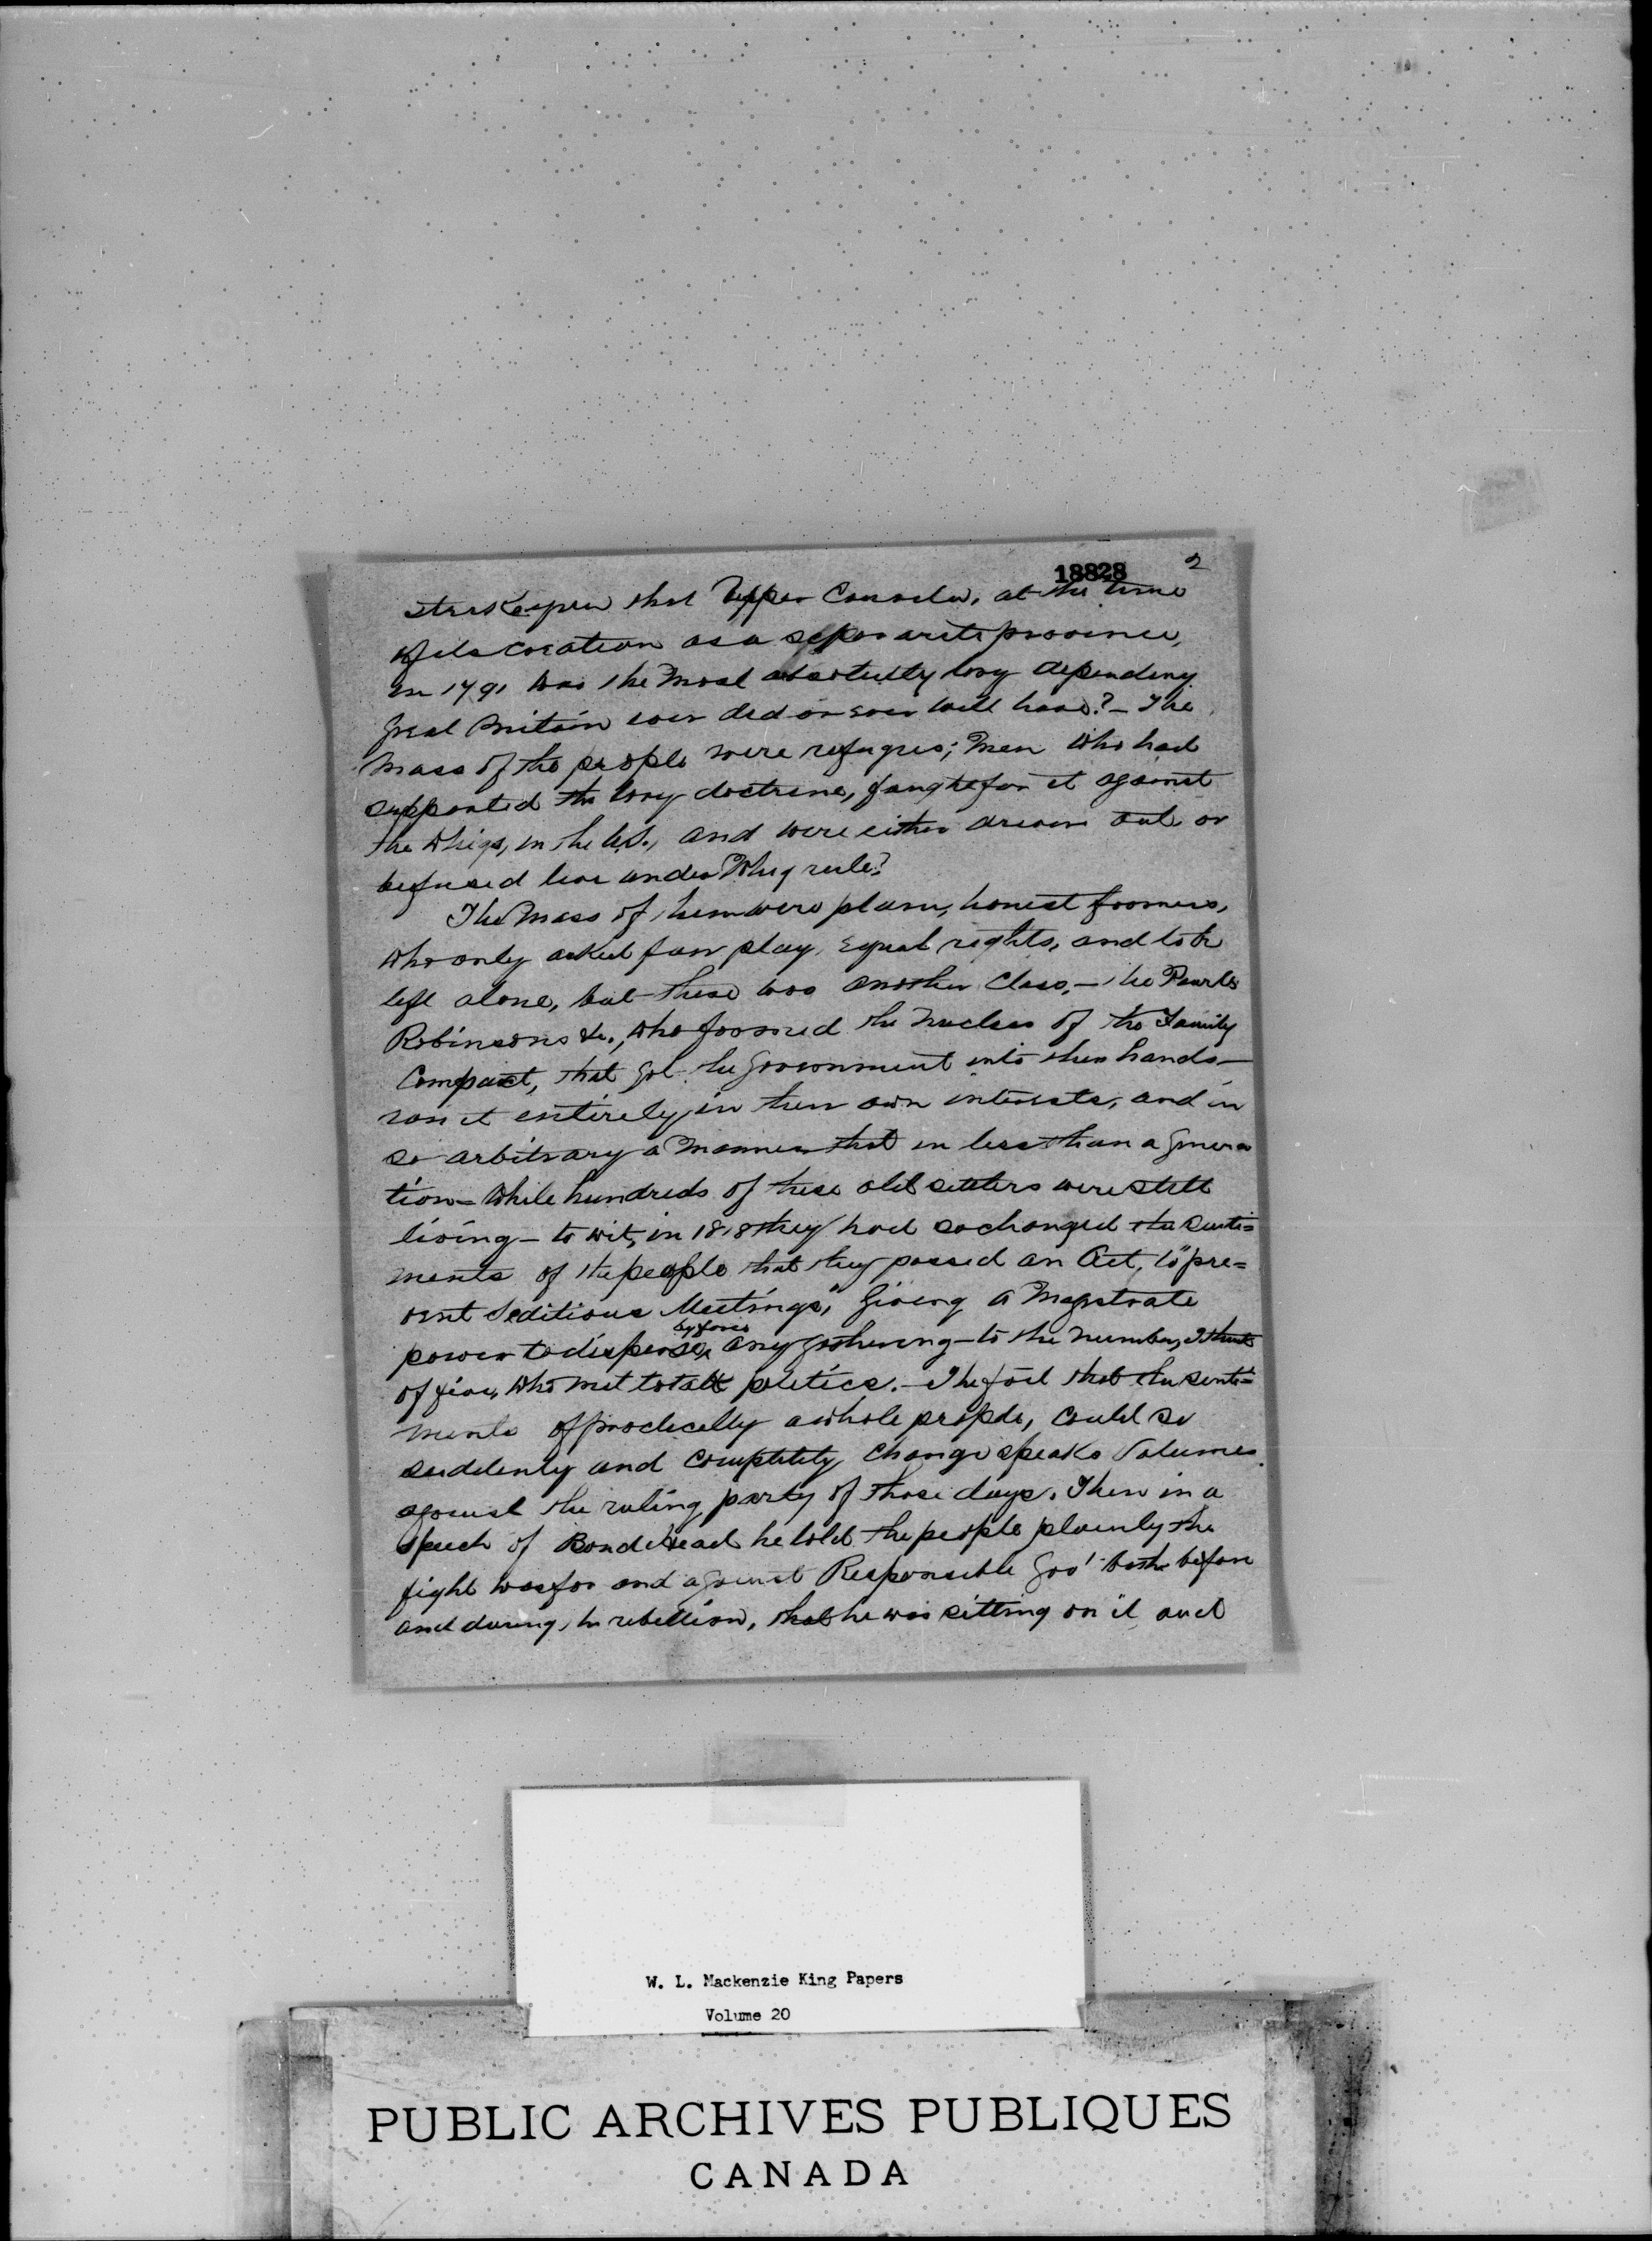 18828 2
that Upper Canada, at the time
of its creation as a separate province,
in 1791 was the most absolutely tory dependency
Great Britain ever did or ever will have? — The
mass of the people were refugees; men who had
supported the tory doctrine, fought for it against
the Whigs, in the U.S., and were either driven out or
refused live under Whig rule?
The mass of them were plain, honest farmers,
who only asked fair play, equal rights, and to be
left alone, but there was another class, — the Powells
Robinsons &c., who formed the nucleus of the Family
Compact, that got the government into their hands —
ran it entirely in their own interests, and in
so arbitrary a manner that in less than a genera
tion — while hundreds of these old settlers were still
living — to wit, in 1818 they had so changed the senti=
ments of the people that they passed an Act, to "pre=
vent Seditious Meetings", giving a Magistrate
by force
power to disperse, any gathering — to the number, I think
of five, who met to talk politics. — The fact that the senti=
ments of practically a whole people, could so
suddenly and completely change speaks volumes
against the ruling party of those days. Then in a
speech of Bond Head he told the people plainly the
fight was for and against Responsible Gov' both before
and during the rebellion, that he was sitting on it and
W. L. Mackenzie King Papers
Volume 20
PUBLIC ARCHIVES PUBLIQUES
CANADA